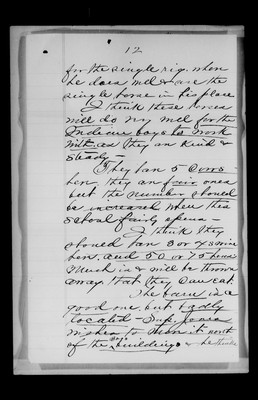 12
for the single rig, when
he does not use the
single horse in his place
I think these horses
will do very well for the
Indian boys to work
with, as they are kind &
steady —
They have 5 cows
here, they are fair ones
but the number should
be increased when this
school fairly opens —
I think they
should have 3 or 4 swine
here, and 50 or 75 hens
Much is & will be thrown
away that they can eat.
The barn is a
good one, but badly
located — Sup. Jones
wishes to move it north
of the buildings & he thinks